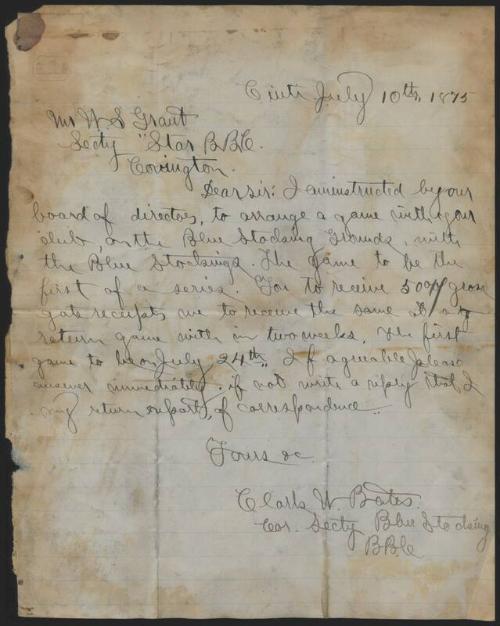 Cinti July 10th, 1875
Mr W S Grant
Secty "Star B.B.C.
Covington.
Dear sir: I am instructed by our
board of directors, to arrange a game with your
club, on the Blue Stocking Grounds, with
the Blue Stockings. The game to be the
first of a series. You to receive 50% gross
gate receipts, we to receive the same at a
return game with in two weeks. The first
game to be on July 24th. If agreeable please
answer immediately. if not write a reply that I
may return report, of correspondence.
Yours &c.
Clark W. Bates.
Cor. Secty Blue Stocking
BBC